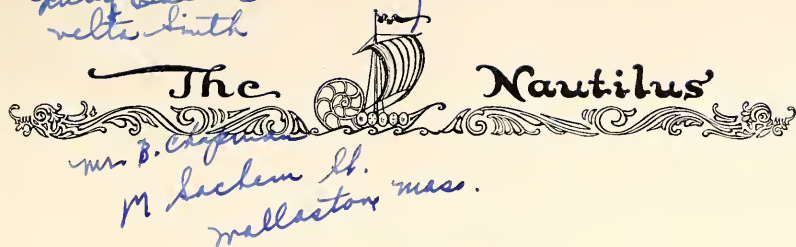 velta Smith
The Nautilus
Mr. B. Chapman
Sachem St.
Wollaston, Mass.